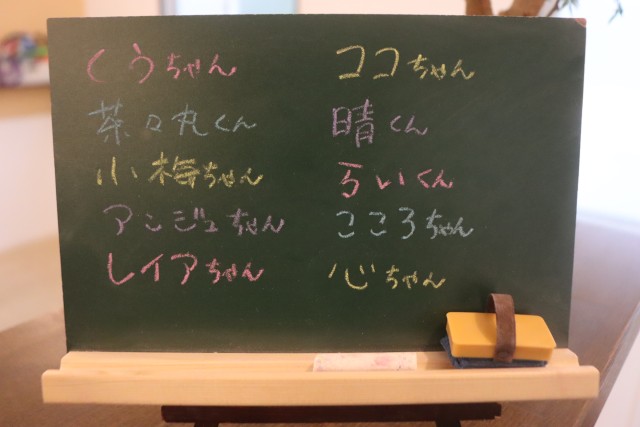 くうちゃん
茶々丸くん
小梅ちゃん
アンジュちゃん
レイアちゃん
ココちゃん
晴くん
らいくん
こころちゃん
心ちゃん